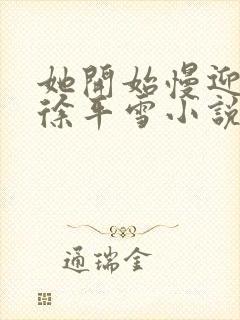 她開始慢迎
徐平雪小說
通瑞金